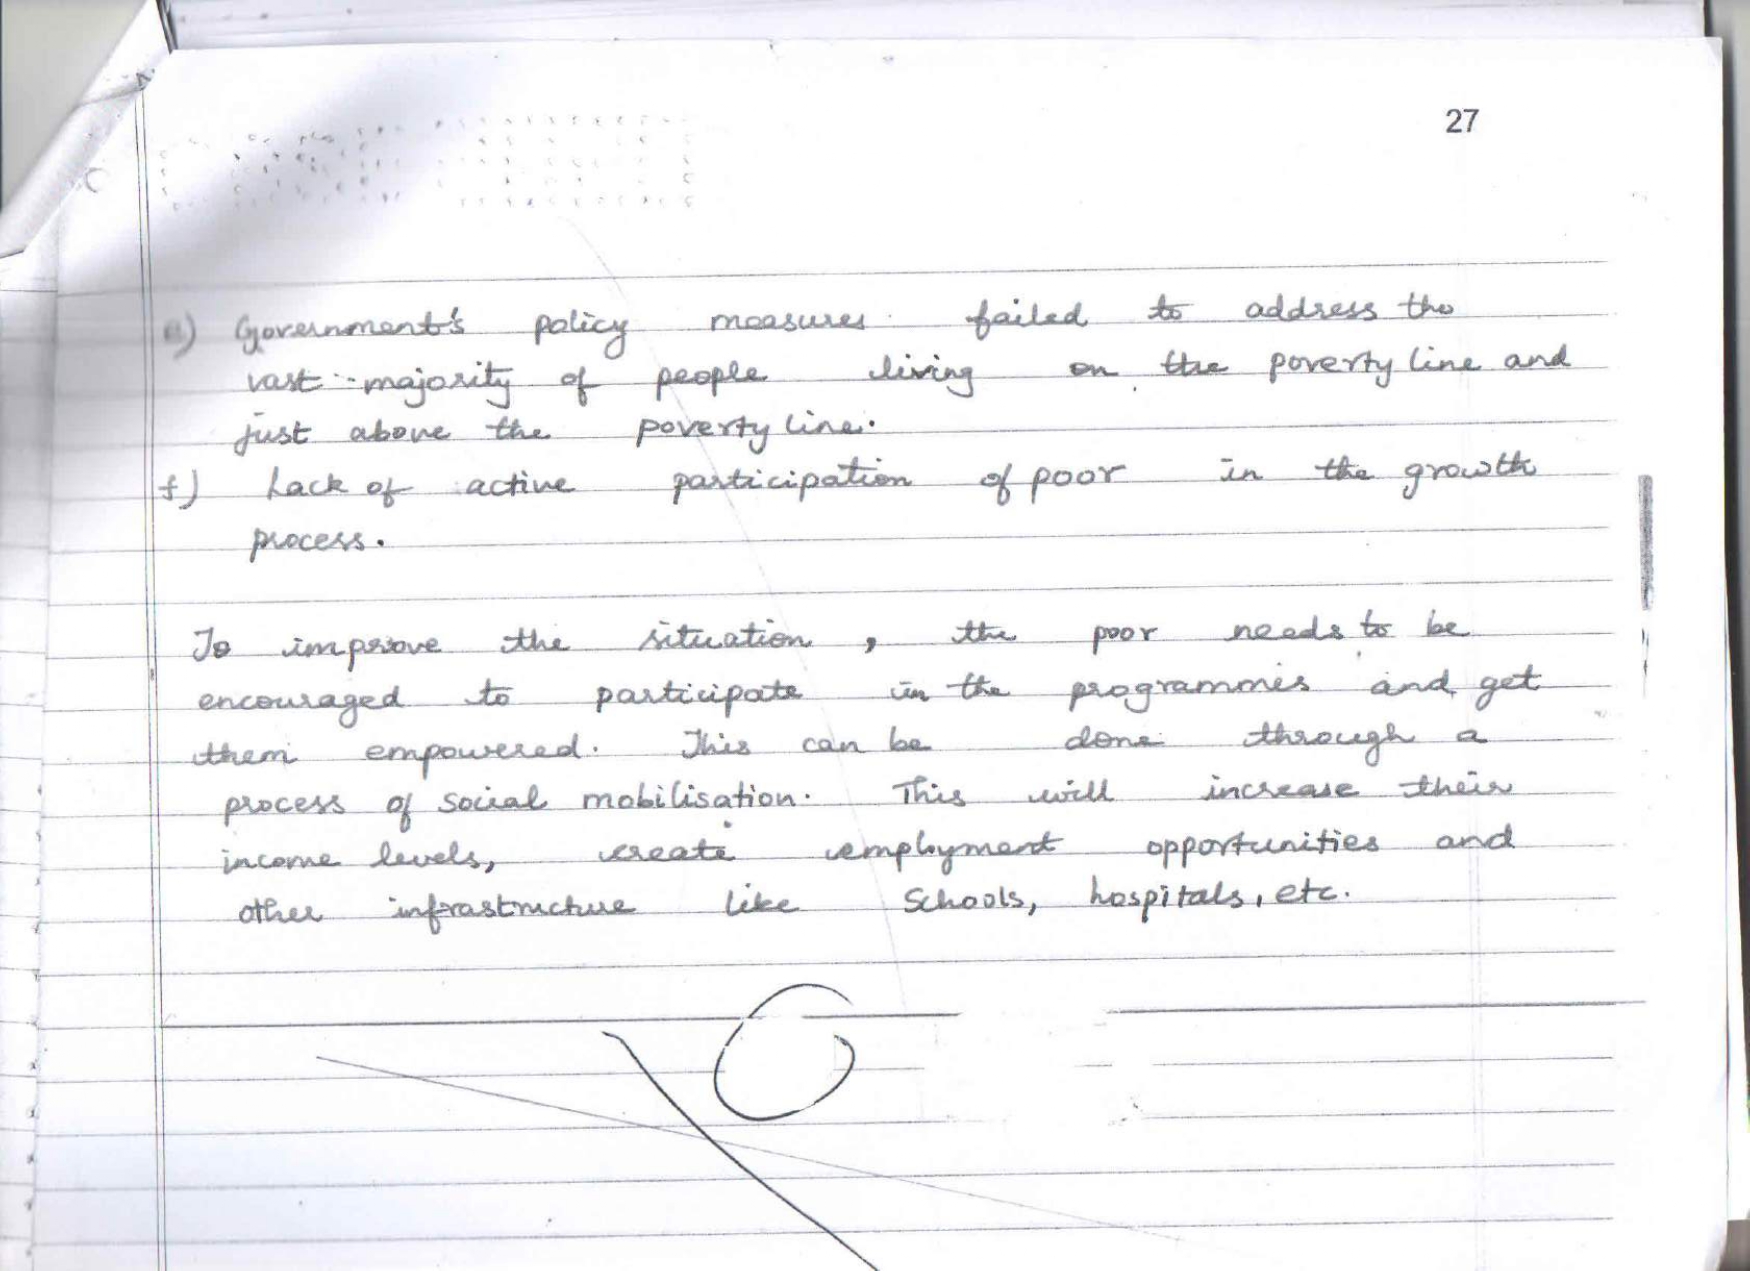 27
e) Government's policy measures failed to address the
vast majority of people living on the poverty line and
just above the poverty line.
f) Lack of active participation of poor in the growth
process.
To improve the situation, the poor needs to be
encouraged to participate in the programmes and get
them empowered. This can be done through a
process of social mobilisation. This will increase their
income levels, create employment opportunities and
other infrastructure like Schools, hospitals, etc.